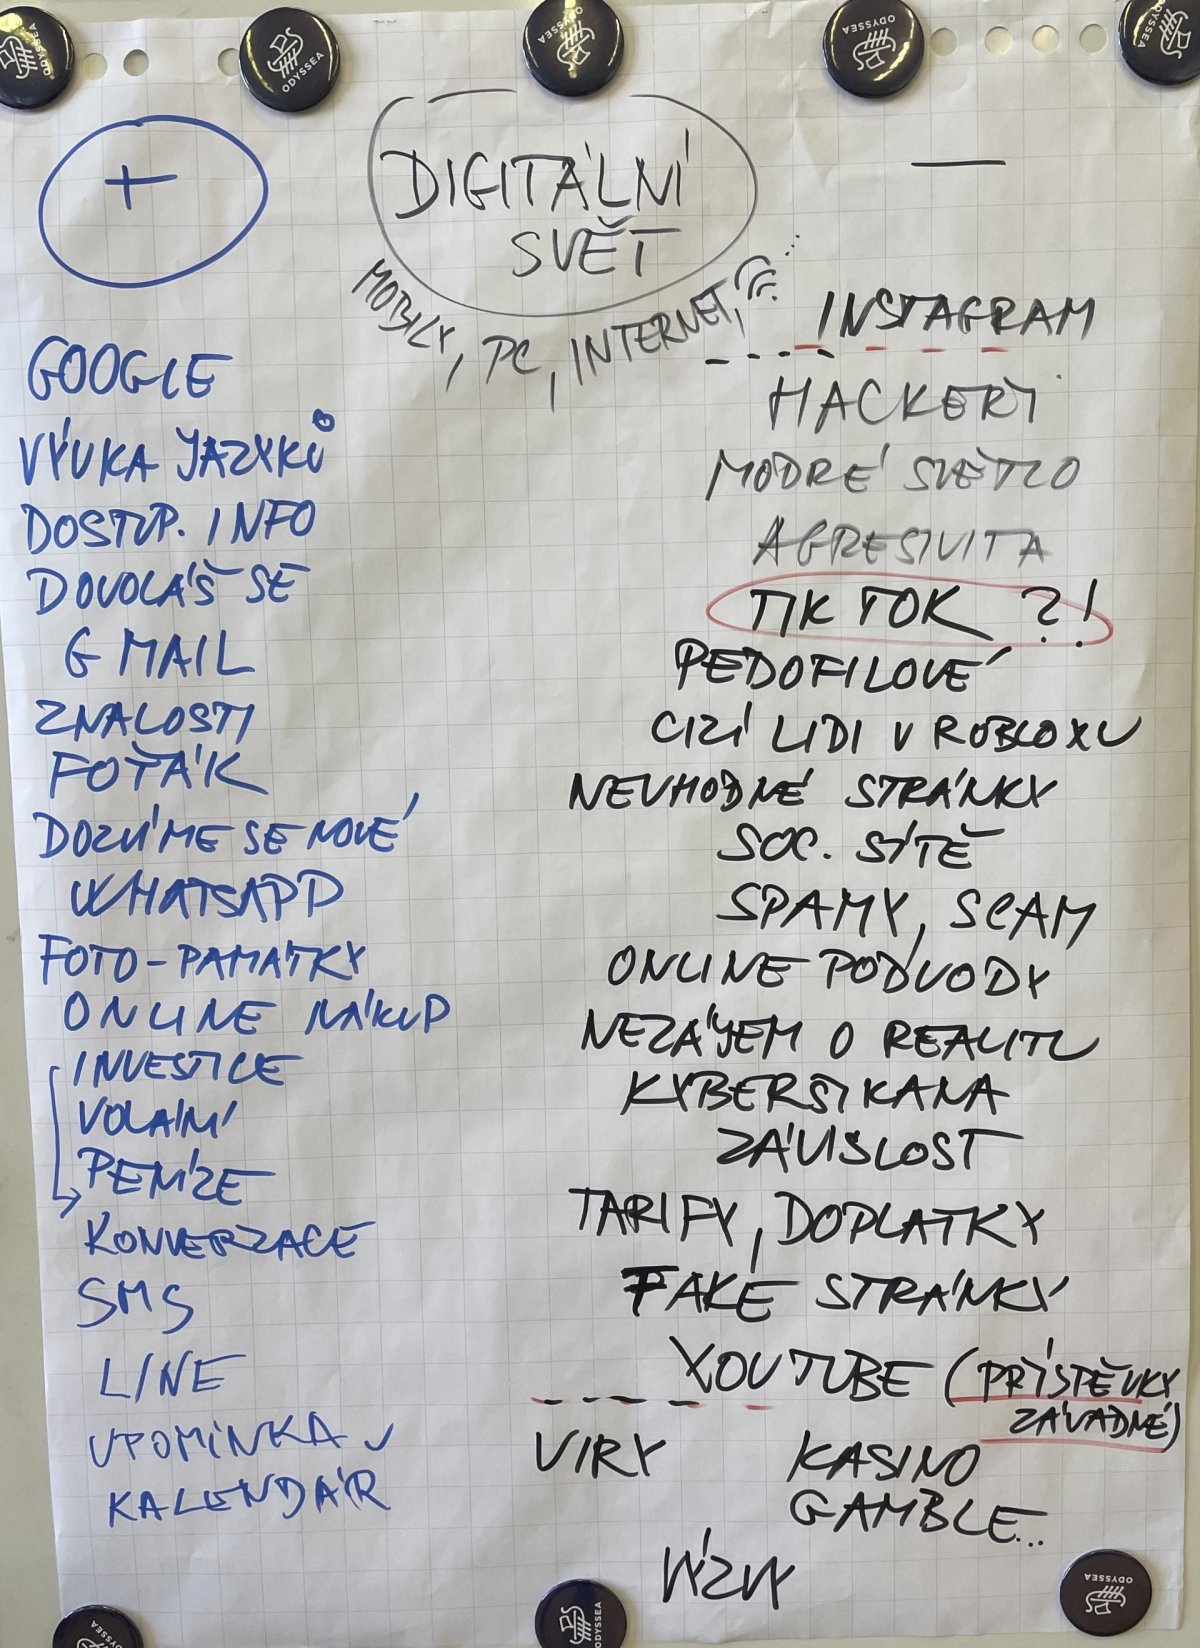 ODYSSEA
ODYSSEA
ODYSSEA
ODYSSEA
ODYSSEA
+
DIGITÁLNÍ
SVĚT
—
MOBILY, PC, INTERNET, ...
GOOGLE
VÝUKA JAZYKŮ
DOSTUP. INFO
DOVOLÁŠ SE
G MAIL
ZNALOSTI
FOŤÁK
DOZVÍME SE NOVÉ
WHATSAPP
FOTO-PAMÁTKY
ONLINE NÁKUP
INVESTICE
VOLÁNÍ
PENÍZE
KONVERZACE
SMS
LINE
UPOMÍNKA V
KALENDÁŘ
INSTAGRAM
HACKEŘI
MODRÉ SVĚTLO
AGRESIVITA
TIK TOK ?!
PEDOFILOVÉ
CIZÍ LIDI V ROBLOXU
NEVHODNÉ STRÁNKY
SOC. SÍTĚ
SPAMY, SCAM
ONLINE PODVODY
NEZÁJEM O REALITU
KYBERŠIKANA
ZÁVISLOST
TARIFY, DOPLATKY
FAKE STRÁNKY
YOUTUBE (PŘÍSPĚVKY
ZÁVADNÉ)
VIRY KASINO
GAMBLE...
VÝZVY
ODYSSEA
ODYSSEA
ODYSSEA